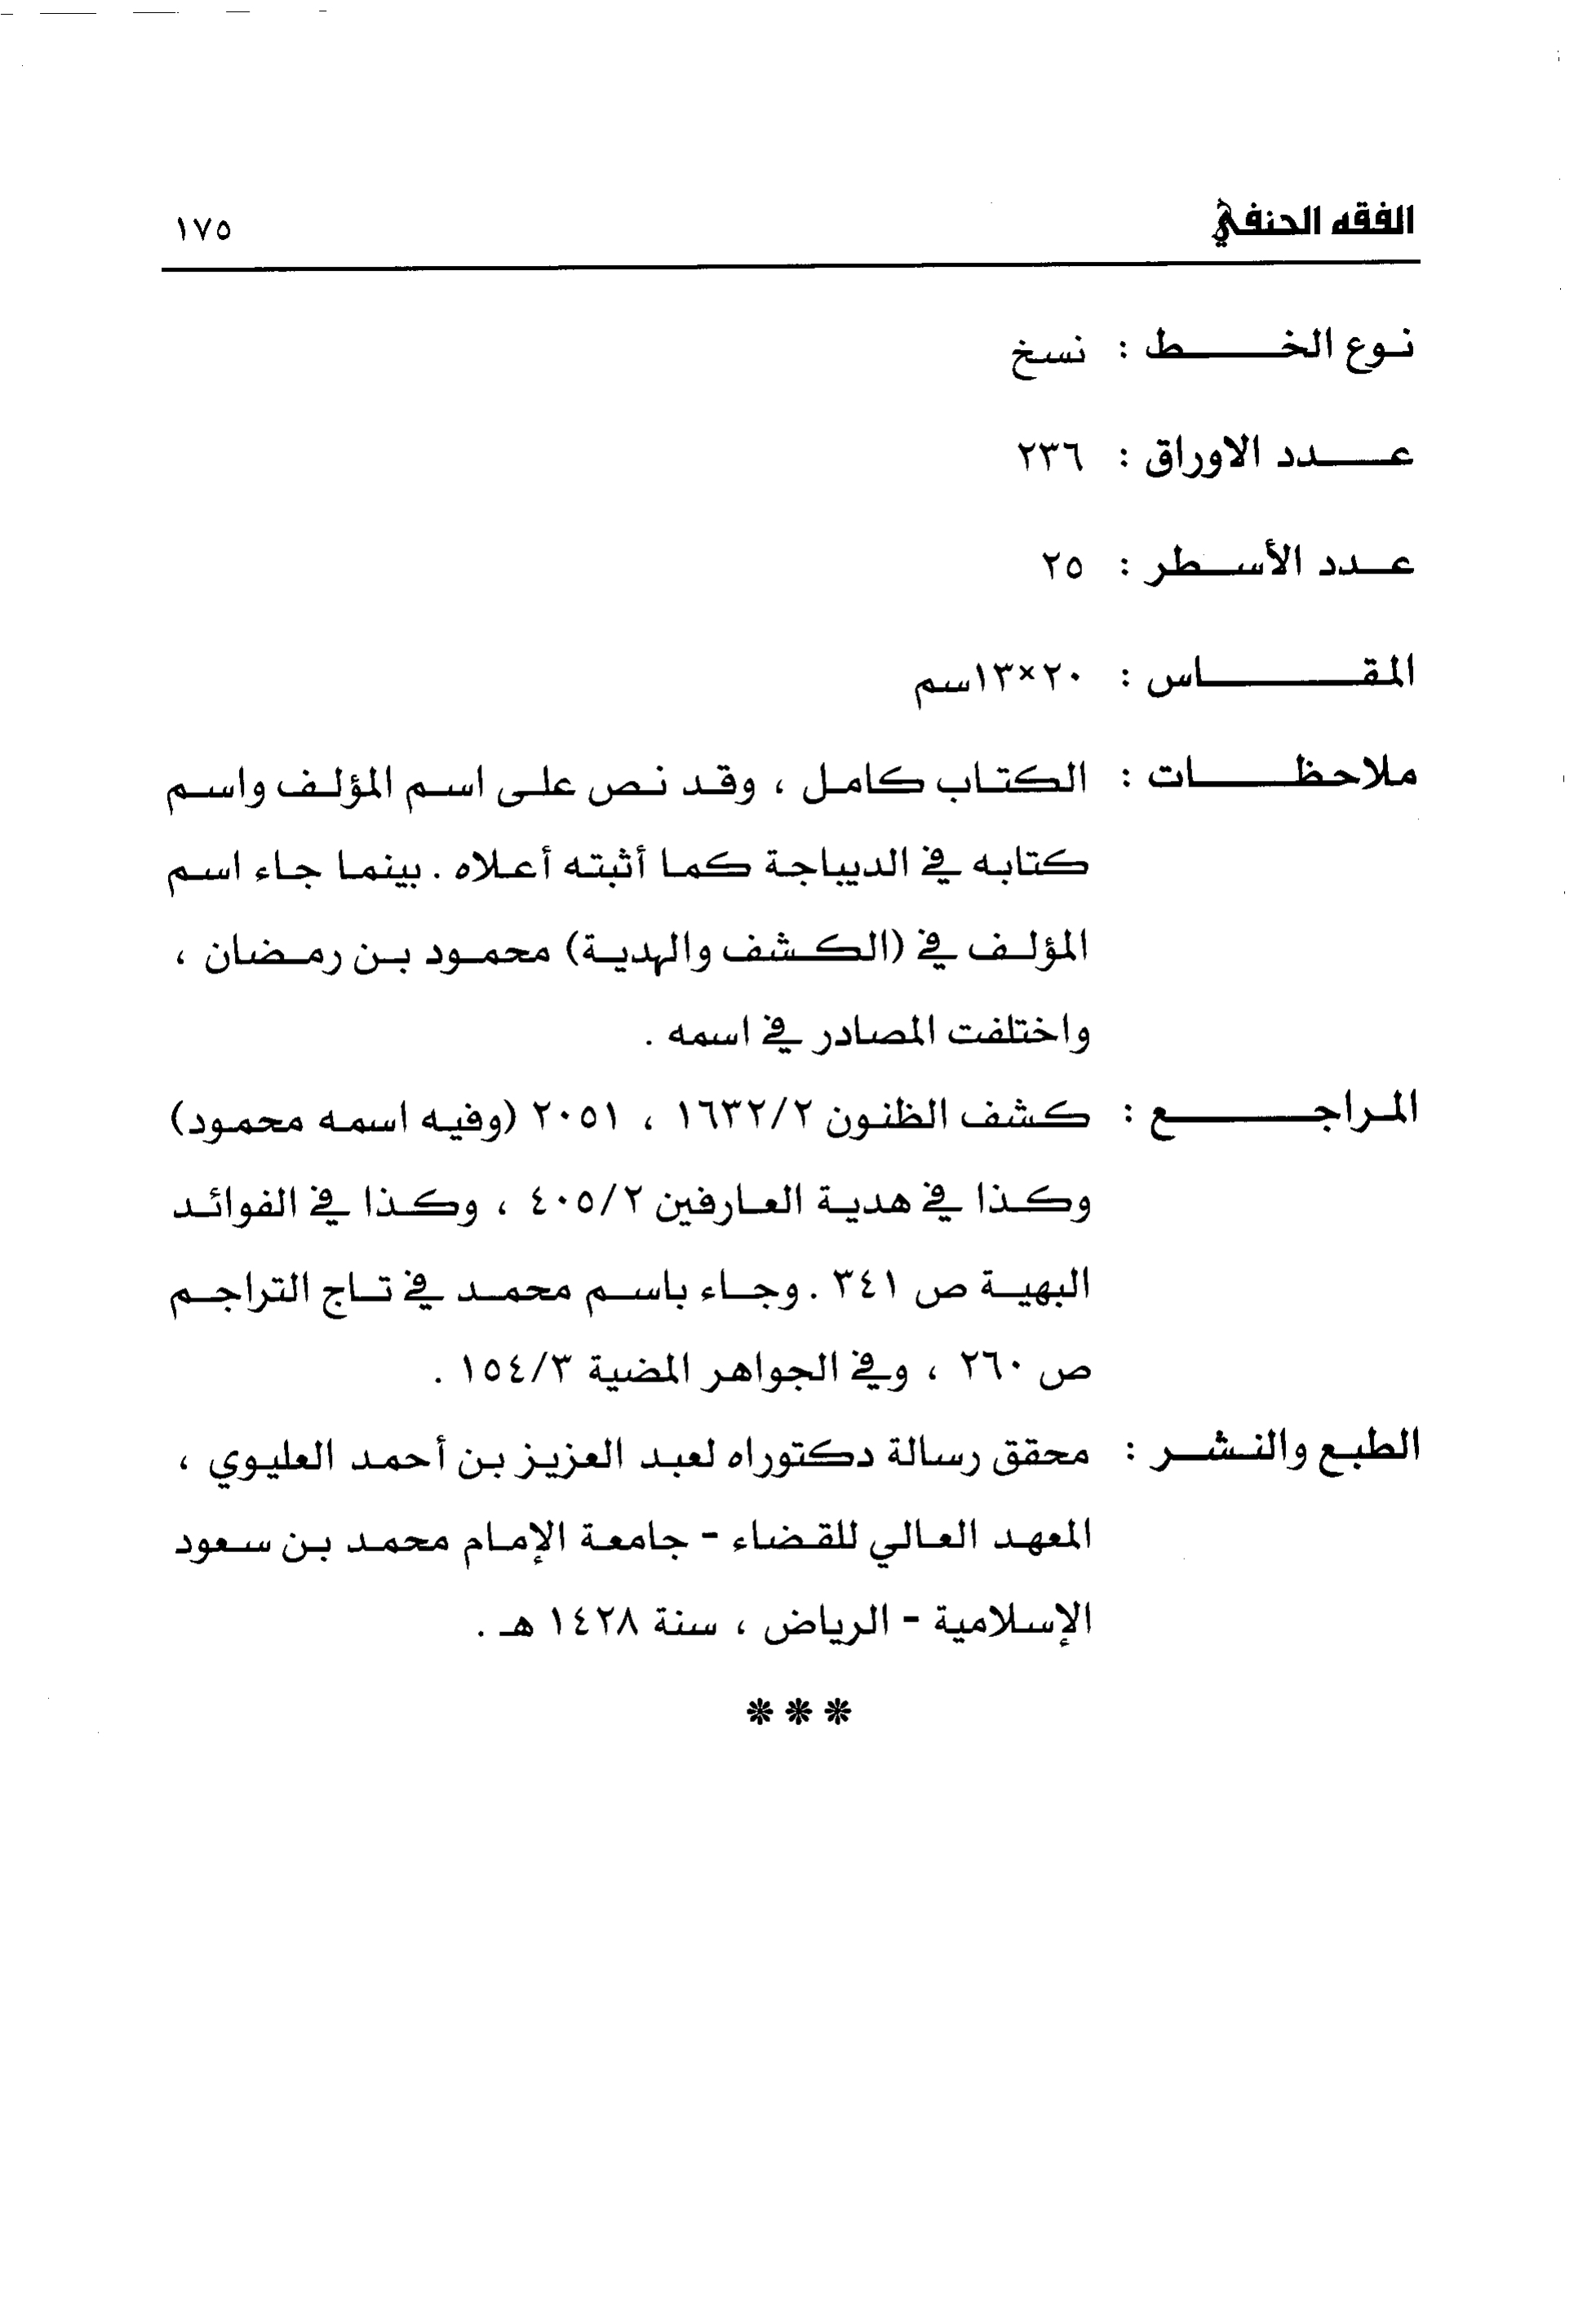 الفقه الحنفي ١٧٥
نوع الخط : نسخ
عدد الاوراق : ٢٣٦
عدد الأسطر : ٢٥
المقاس : ٢٠×١٣سم
ملاحظات : الكتاب كامل ، وقد نص على اسم المؤلف واسم
كتابه في الديباجة كما أثبته أعلاه . بينما جاء اسم
المؤلف في (الكشف والهدية) محمود بن رمضان ،
واختلفت المصادر في اسمه .
المراجع : كشف الظنون ١٦٣٢/٢ ، ٢٠٥١ (وفيه اسمه محمود)
وكذا في هدية العارفين ٤٠٥/٢ ، وكذا في الفوائد
البهية ص ٣٤١ . وجاء باسم محمد في تاج التراجم
ص ٢٦٠ ، وفي الجواهر المضية ١٥٤/٣ .
الطبع والنشر : محقق رسالة دكتوراه لعبد العزيز بن أحمد العليوي ،
المعهد العالي للقضاء - جامعة الإمام محمد بن سعود
الإسلامية - الرياض ، سنة ١٤٢٨ هـ .
***